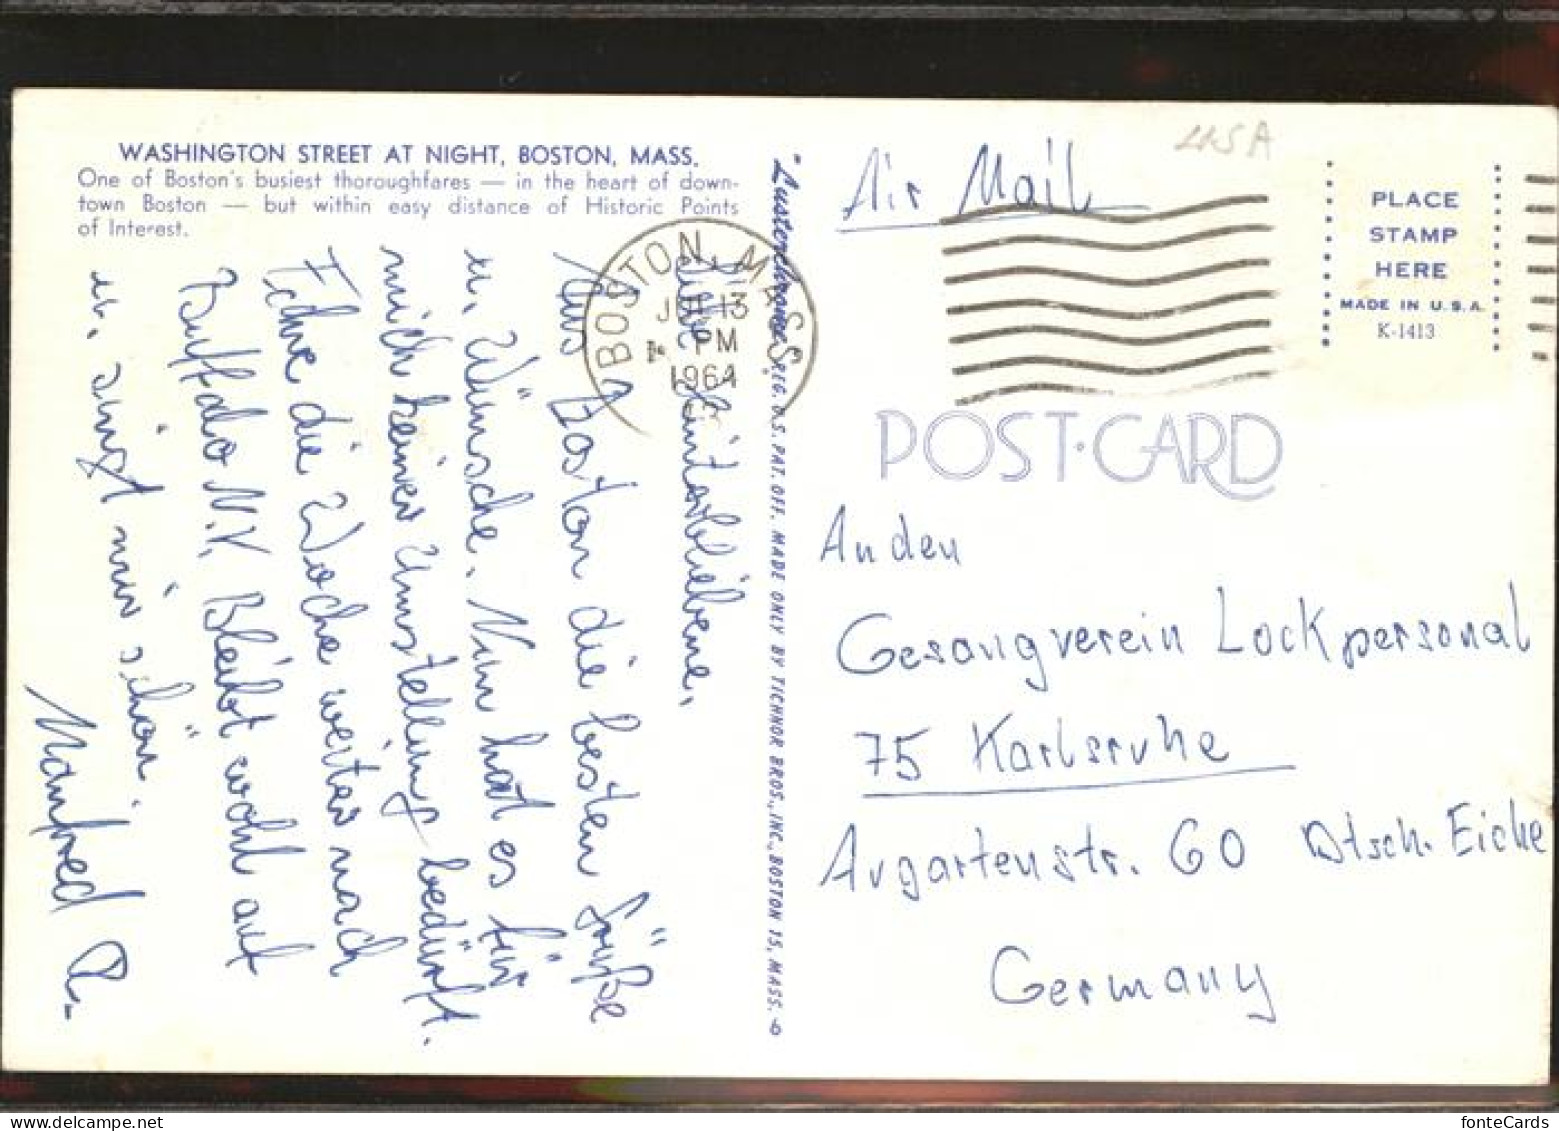 WASHINGTON STREET AT NIGHT, BOSTON, MASS.
One of Boston's busiest thoroughfares — in the heart of down-
town Boston — but within easy distance of Historic Points
of Interest.
Liebe Hinterbliebene,
Aus Boston die besten Grüße
u. Wünsche. Nun hat es für
mich keiner Umstellung bedürft.
Fahre die Woche weiter nach
Buffalo N.Y. Bleibt wohl auf
u. singt mir schön.
Manfred A.
"Lusterchrome" REG. U.S. PAT. OFF. MADE ONLY BY TICHNOR BROS., INC., BOSTON 15, MASS.
BOSTON, MASS.
JUL 13
PM
1964
Air Mail
USA
PLACE
STAMP
HERE
MADE IN U.S.A.
K-1413
POST-CARD
An den
Gesangverein Lockpersonal
75 Karlsruhe
Augartenstr. 60 Dtsch. Eiche
Germany
fonteCards